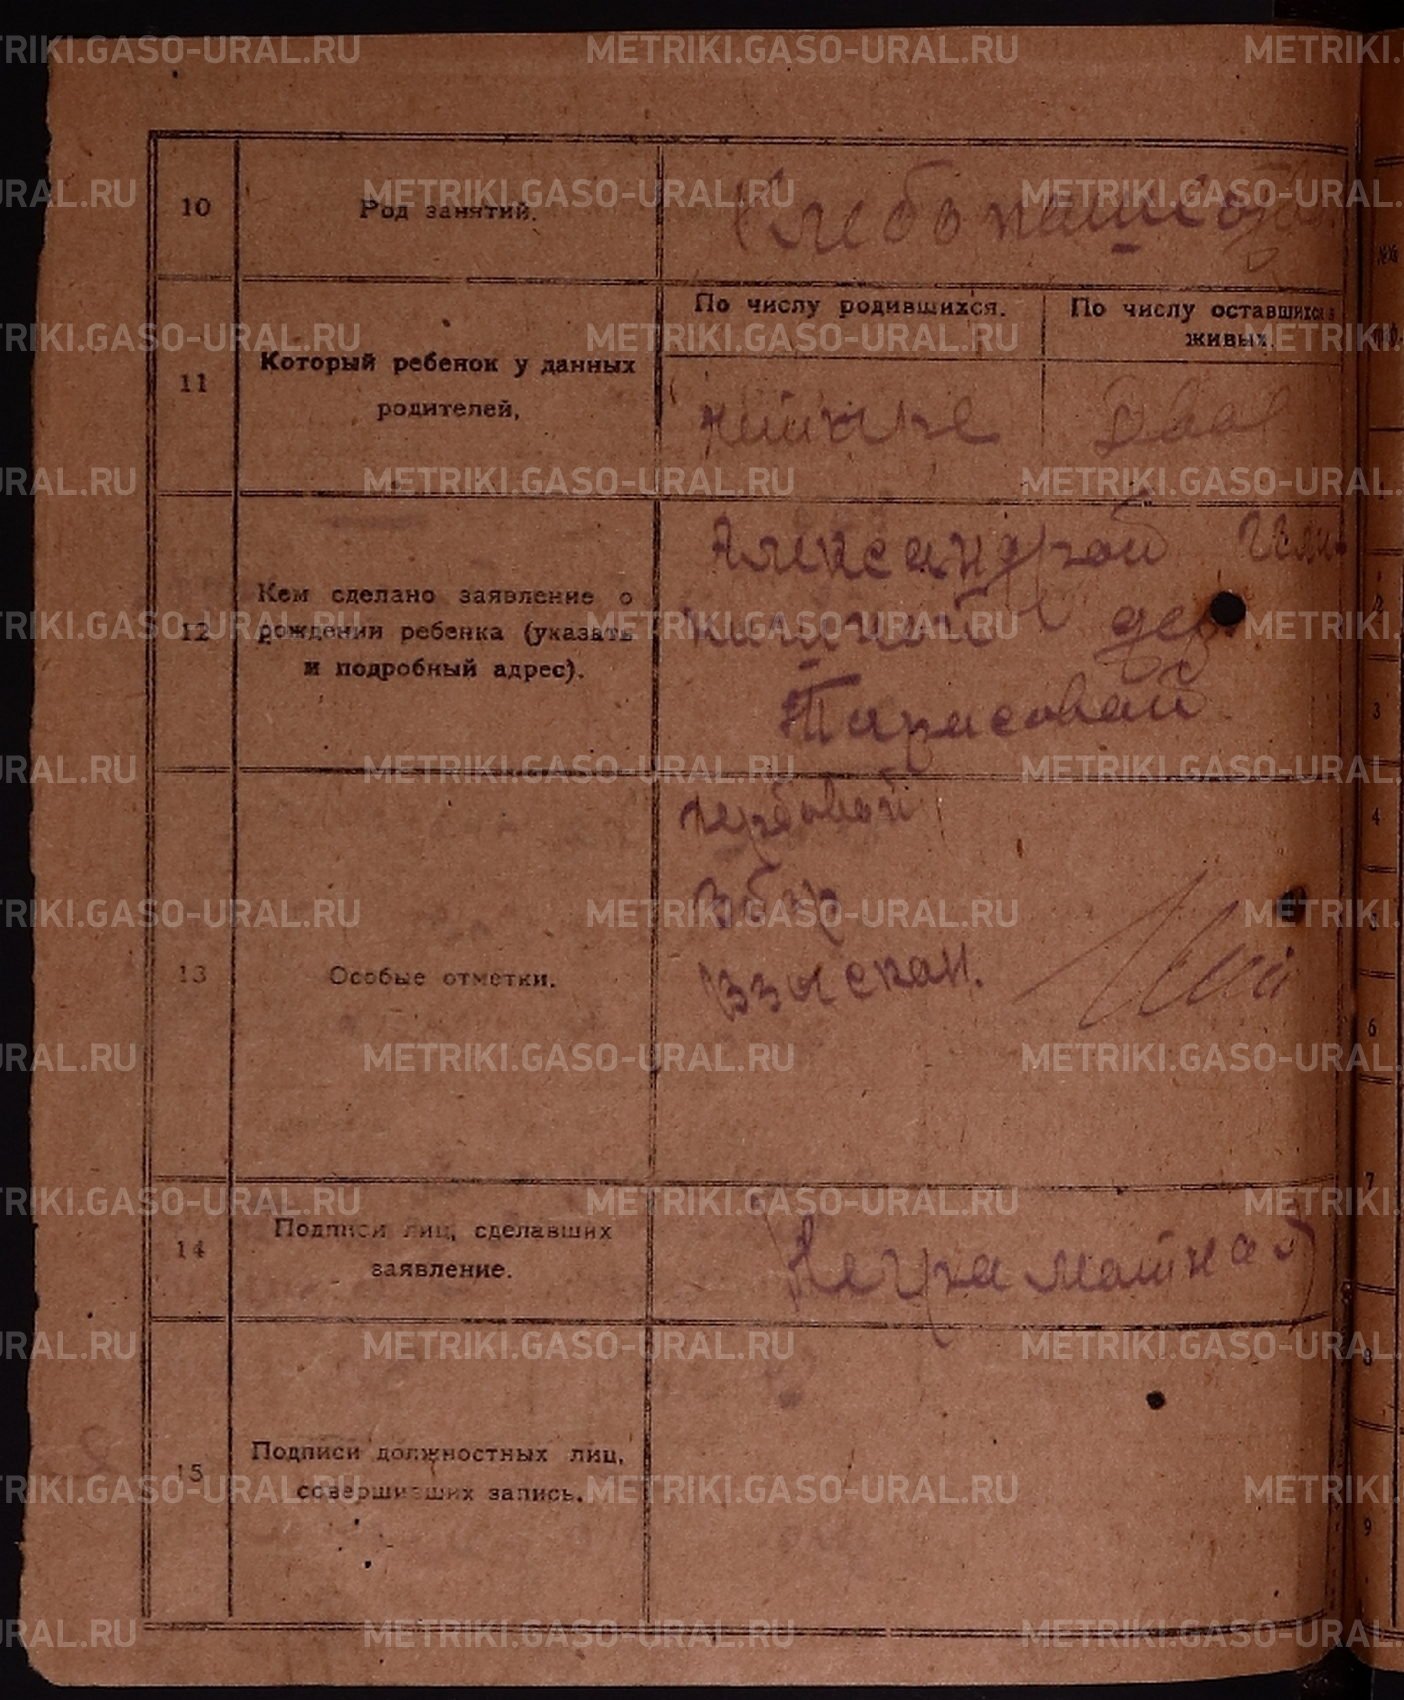 METRIKI.GASO-URAL.RU
10
Род занятий.
Хлебопашество
11
Который ребенок у данных
родителей,
По числу родившихся.
По числу оставшихся в
живых.
Два
12
Кем сделано заявление о
рождении ребенка (указать
и подробный адрес).
Александрой
дер.
Тарасовой
13
Особые отметки.
гербовой
сбор
взыскан.
14
Подписи лиц, сделавших
заявление.
Неграматная
15
Подписи должностных лиц,
совершивших запись.
2
3
4
5
6
7
8
9